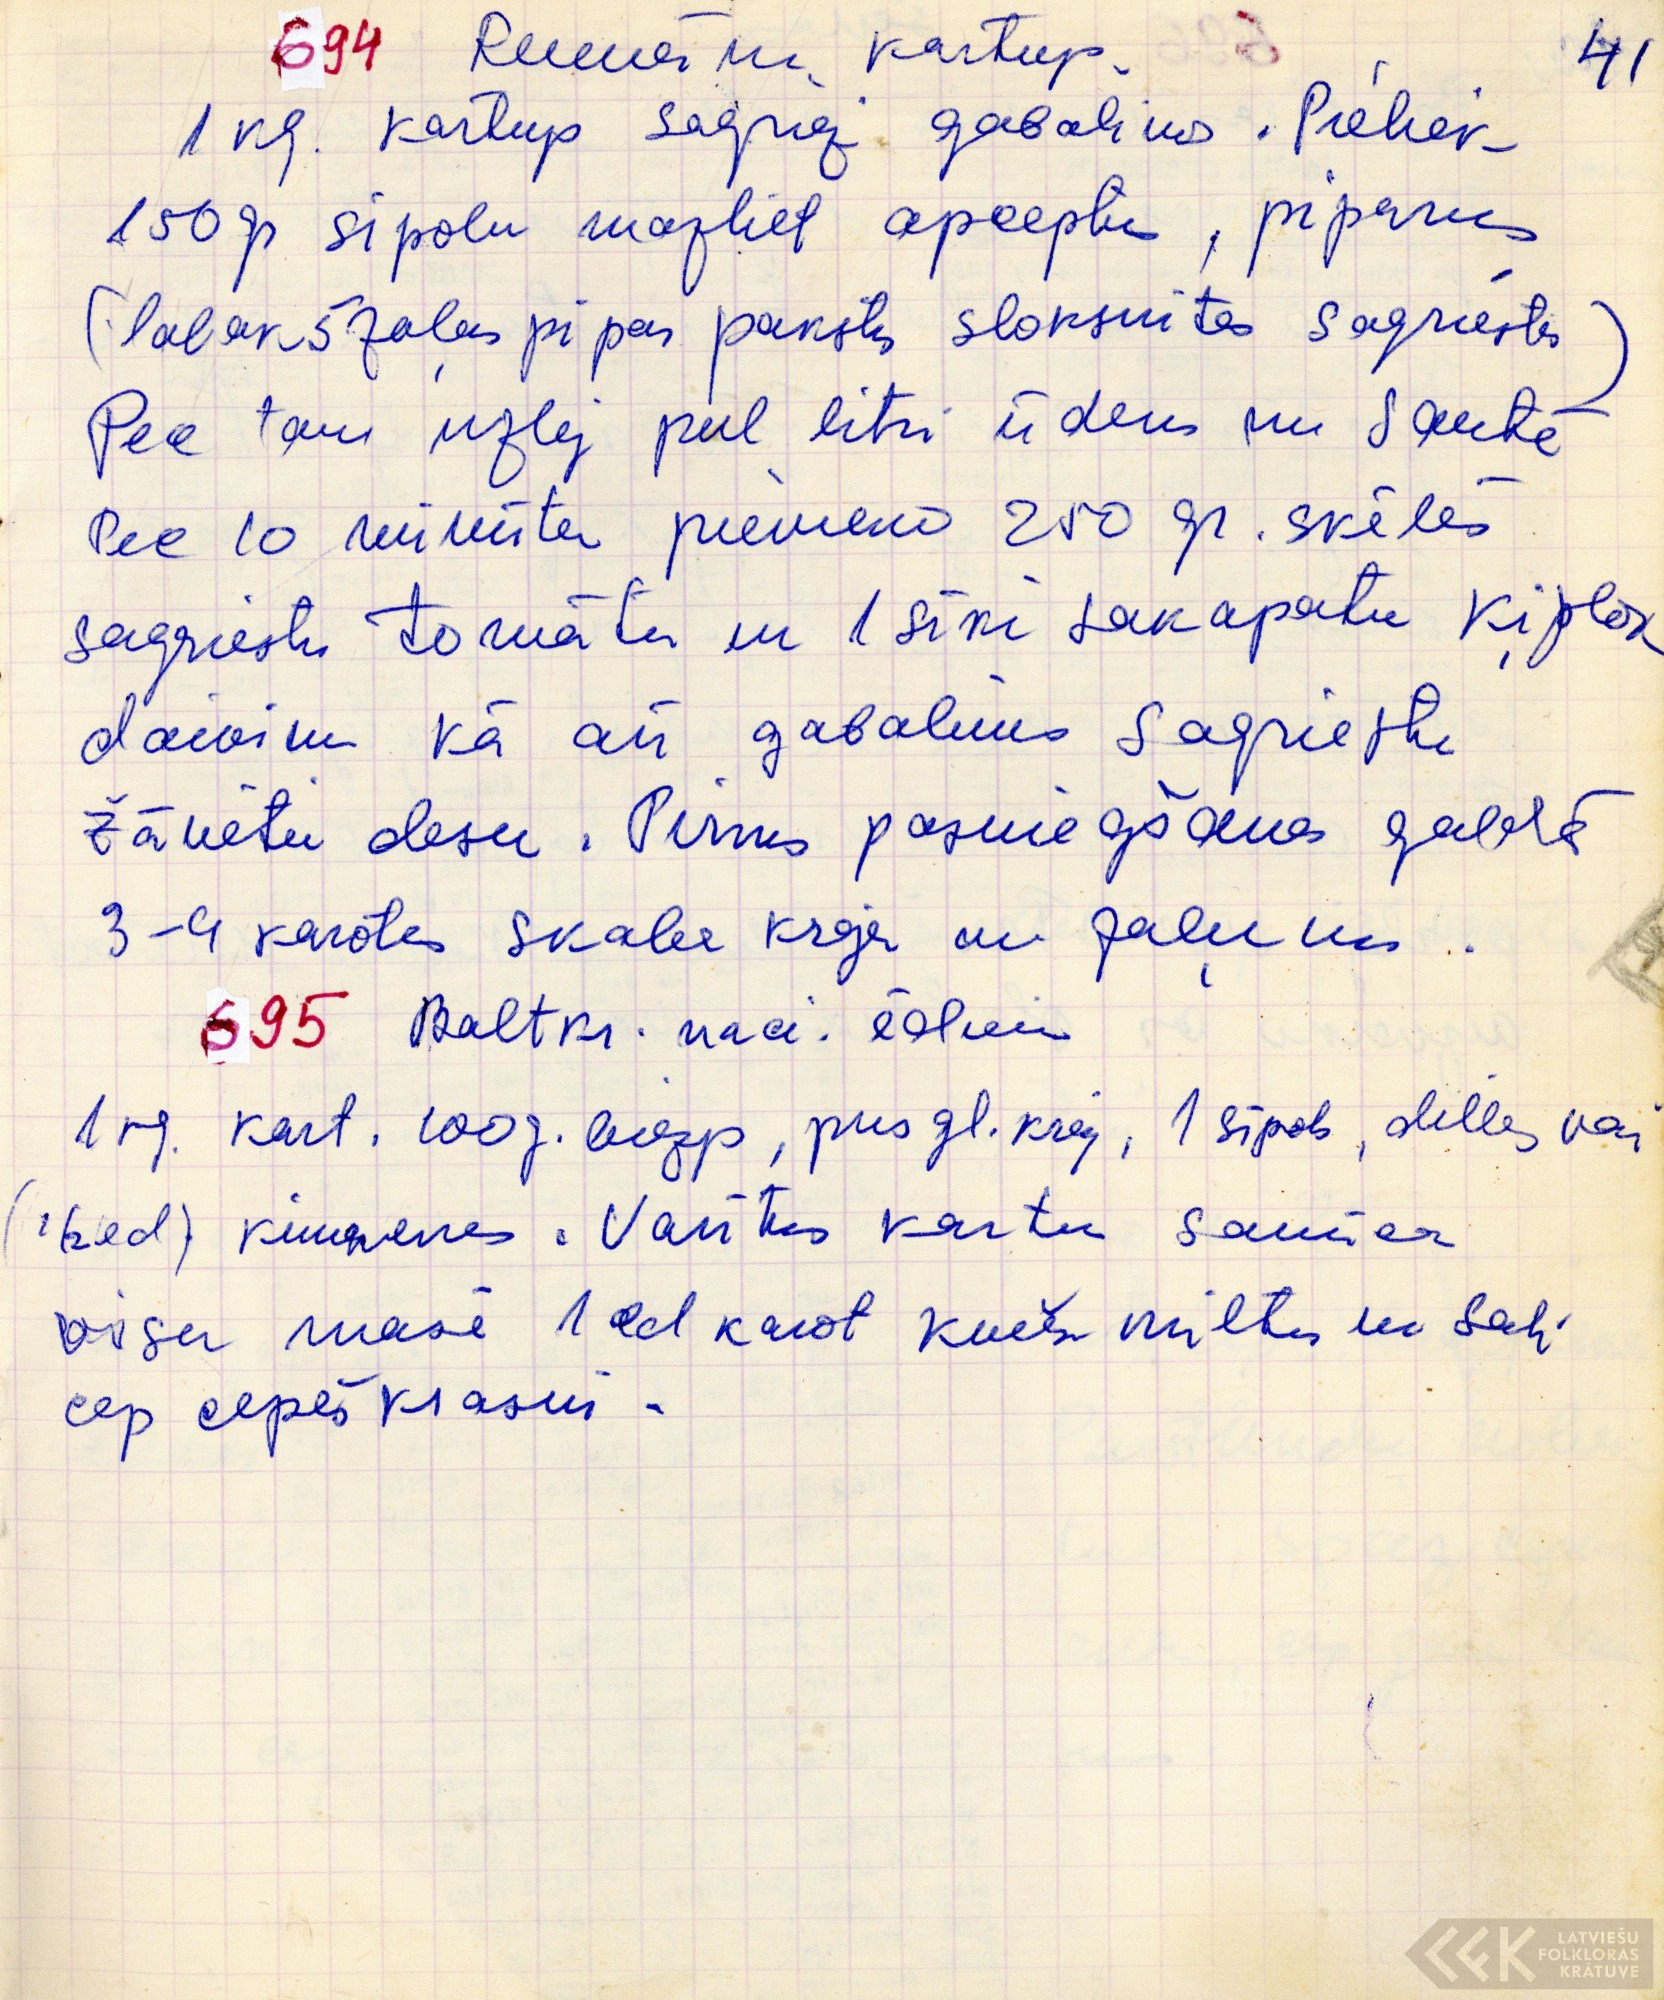 694 Rumāņu kartup. 41
1 kg. kartup sagriež gabaliņos. Pieliek
150 gr sīpolu mazliet apceptu, piparus
(labāk 5 zaļas pipar pākstis sloksnītēs sagrieztas)
Pēc tam uzlej pul litri ūdens un sautē
Pēc 10 minūtēm pievieno 250 gr. šķēlēs
sagrieztu tomātu un 1 sīki sakapātu ķiplok
daiviņu kā arī gabaliņos sagrieztu
žāvētu desu. Pirms pasniegšanas galdā
3-4 karotes skāba krēja un zaļumus.
695 Baltkr. naci. ēdiens
1 kg. kart. 100 g. biezp, pus gl. krēj, 1 sīpols, dilles vai
ķimenes. Vārītus kartu samaļ
visu masē 1 ēd karot kvieš miltus un sāli
cep cepeškrāsnī.
LATVIEŠU
FOLKLORAS
KRĀTUVE